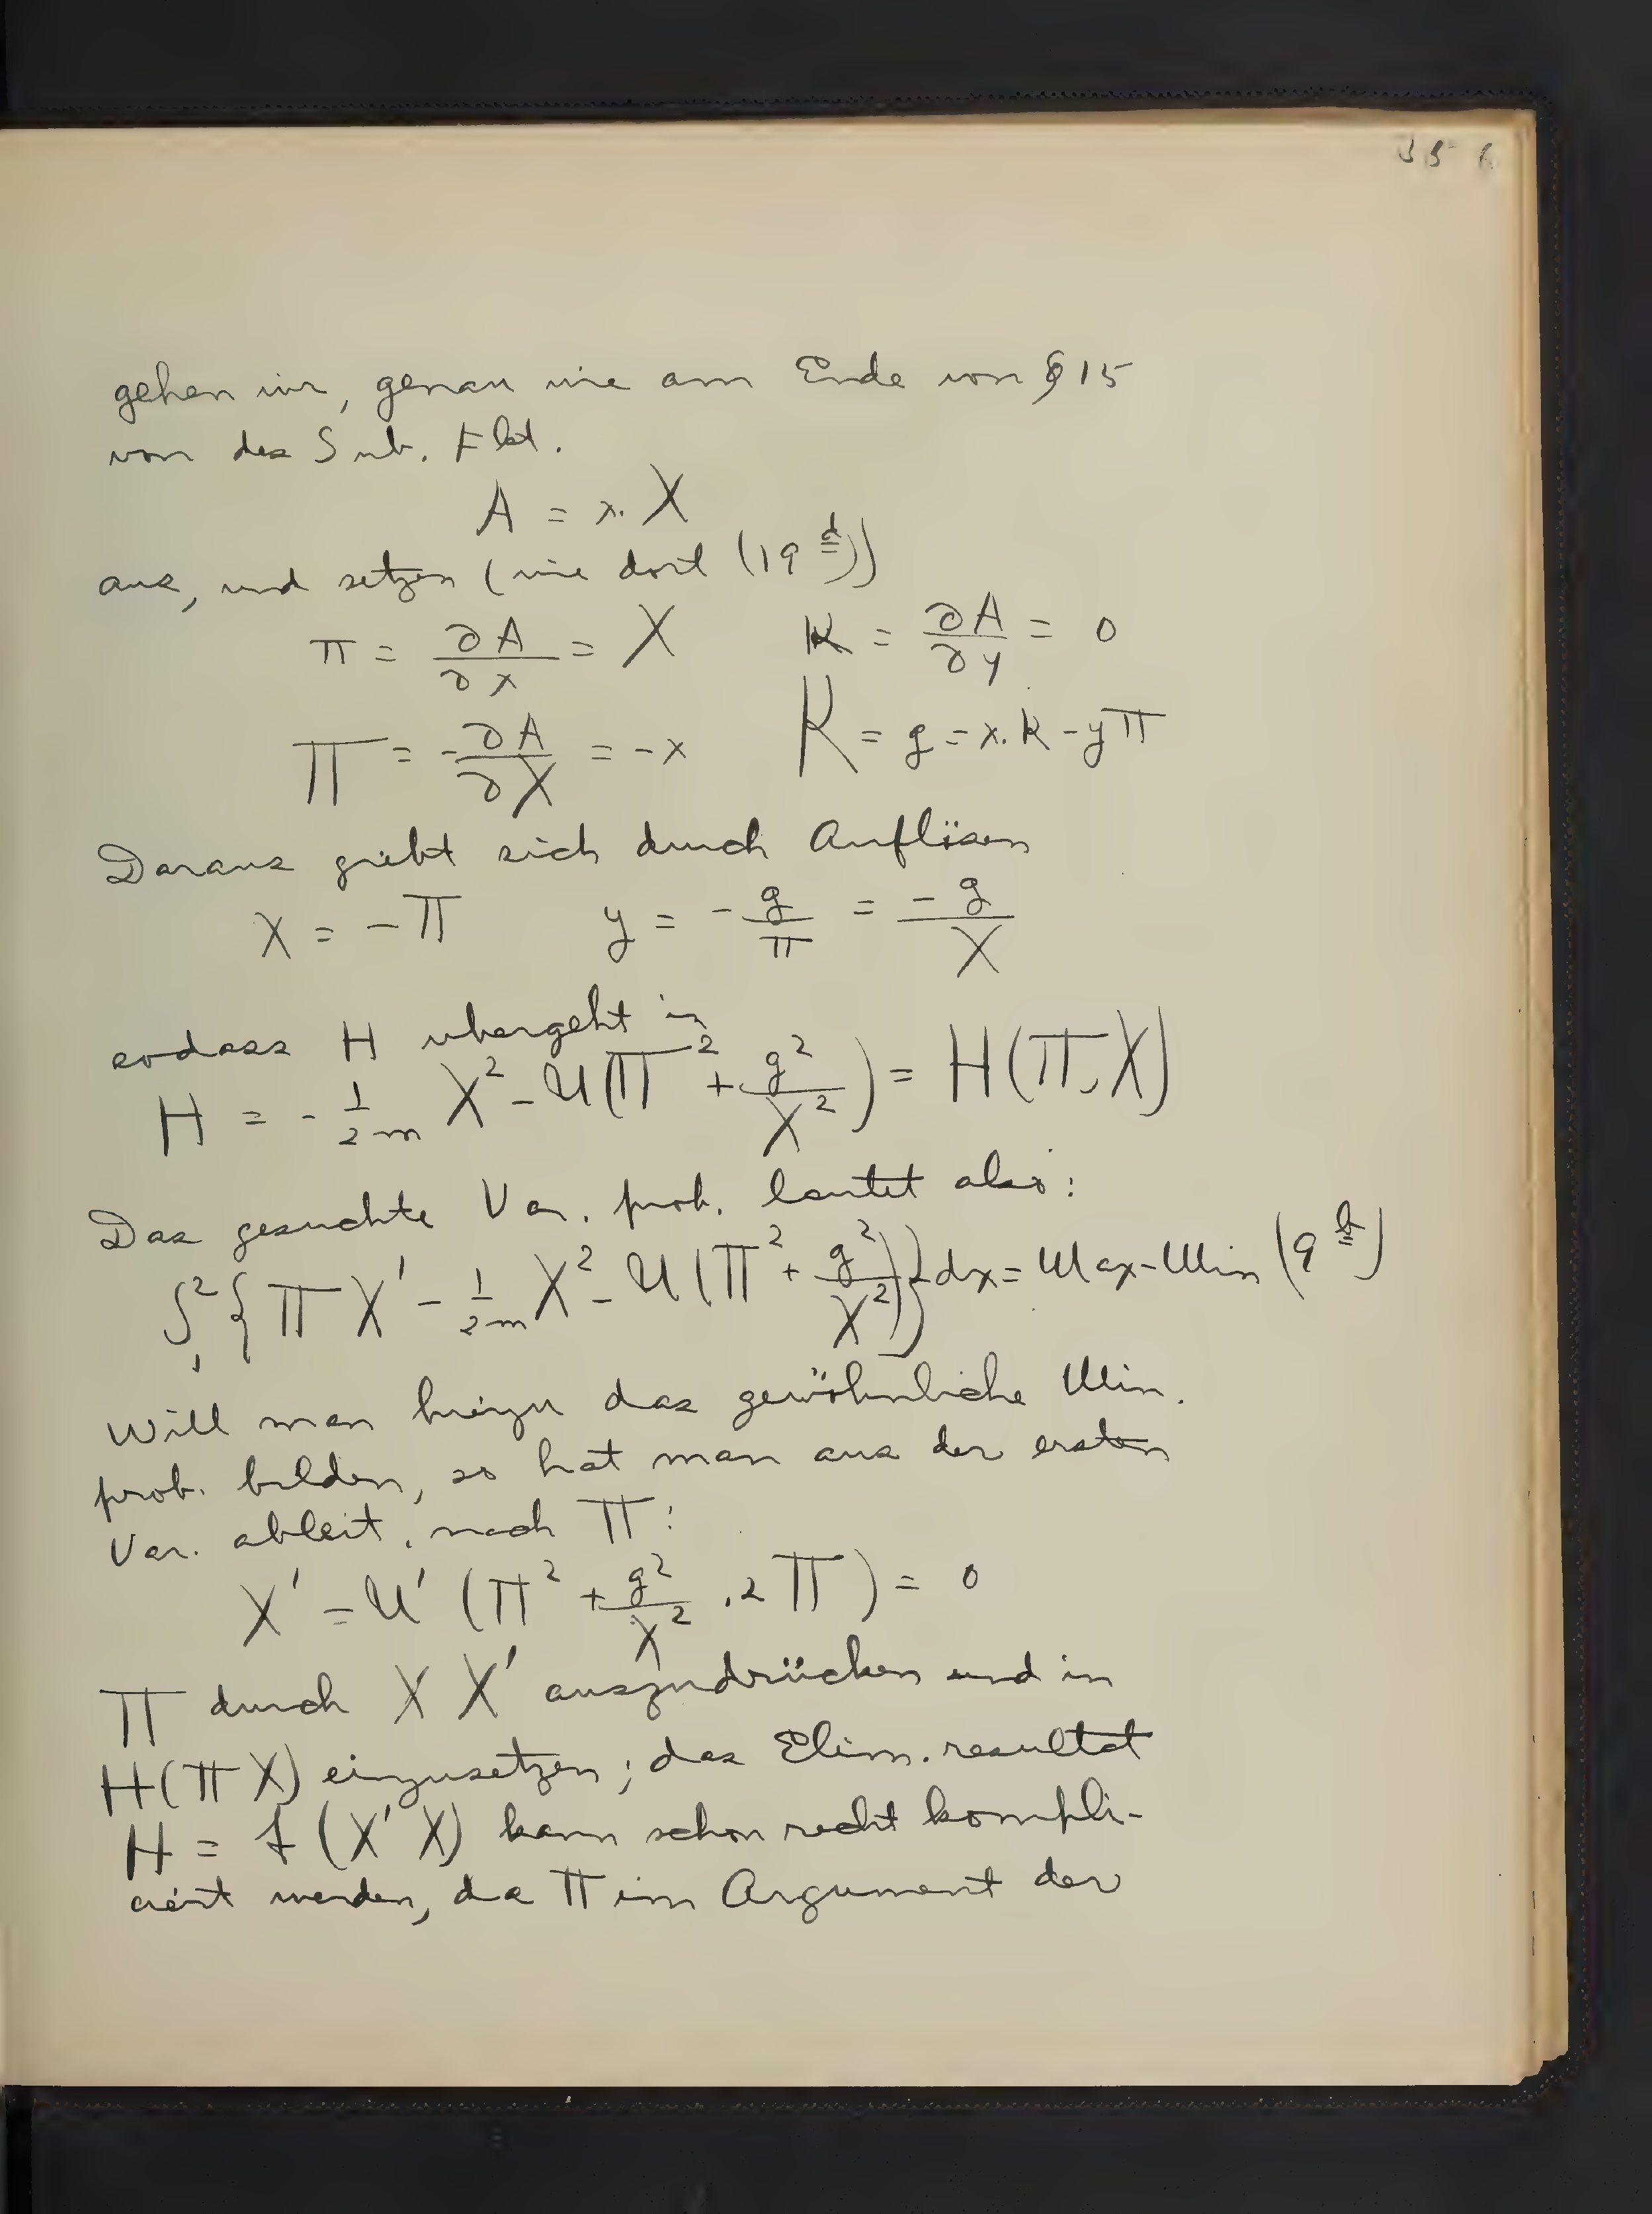 gehen wir, genau wie am Ende von § 15
von der Sub. Fkt.
A = x. X
aus, und setzen (wie dort (19 d))
π = ∂A/∂x = X K = ∂A/∂y = 0
Π = -∂A/∂X = -x K = g = x.k - yπ
Daraus giebt sich durch Auflösen
x = -Π y = -g/π = -g/X
sodass H übergeht in
H = -1/2m X² - U(Π² + g²/X²) = H(Π,X)
Das gesuchte Var. prob. lautet also:
∫₁² {Π X' - 1/2m X² - U(Π² + g²/X²)} dx = Max-Min (9 b)
Will man hiezu das gewöhnliche Min.
prob. bilden, so hat man aus der ersten
Var. ableit. nach Π:
X' = U' (Π² + g²/X² .2 Π) = 0
Π durch X X' auszudrücken und in
H(Π X) einzusetzen; das Elim. resultat
H = f (X' X) kann schon recht kompli-
ciert werden, da Π im Argument der